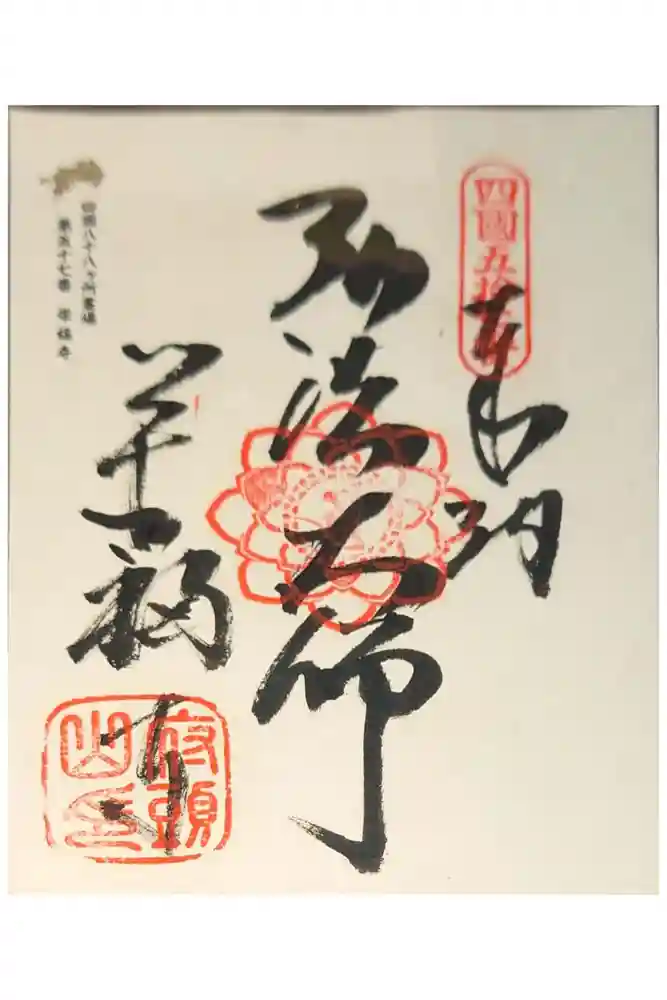 四國五拾七番
奉納
弘法大師
四国八十八ヶ所霊場
第五十七番 栄福寺
栄福寺
府頭
山印